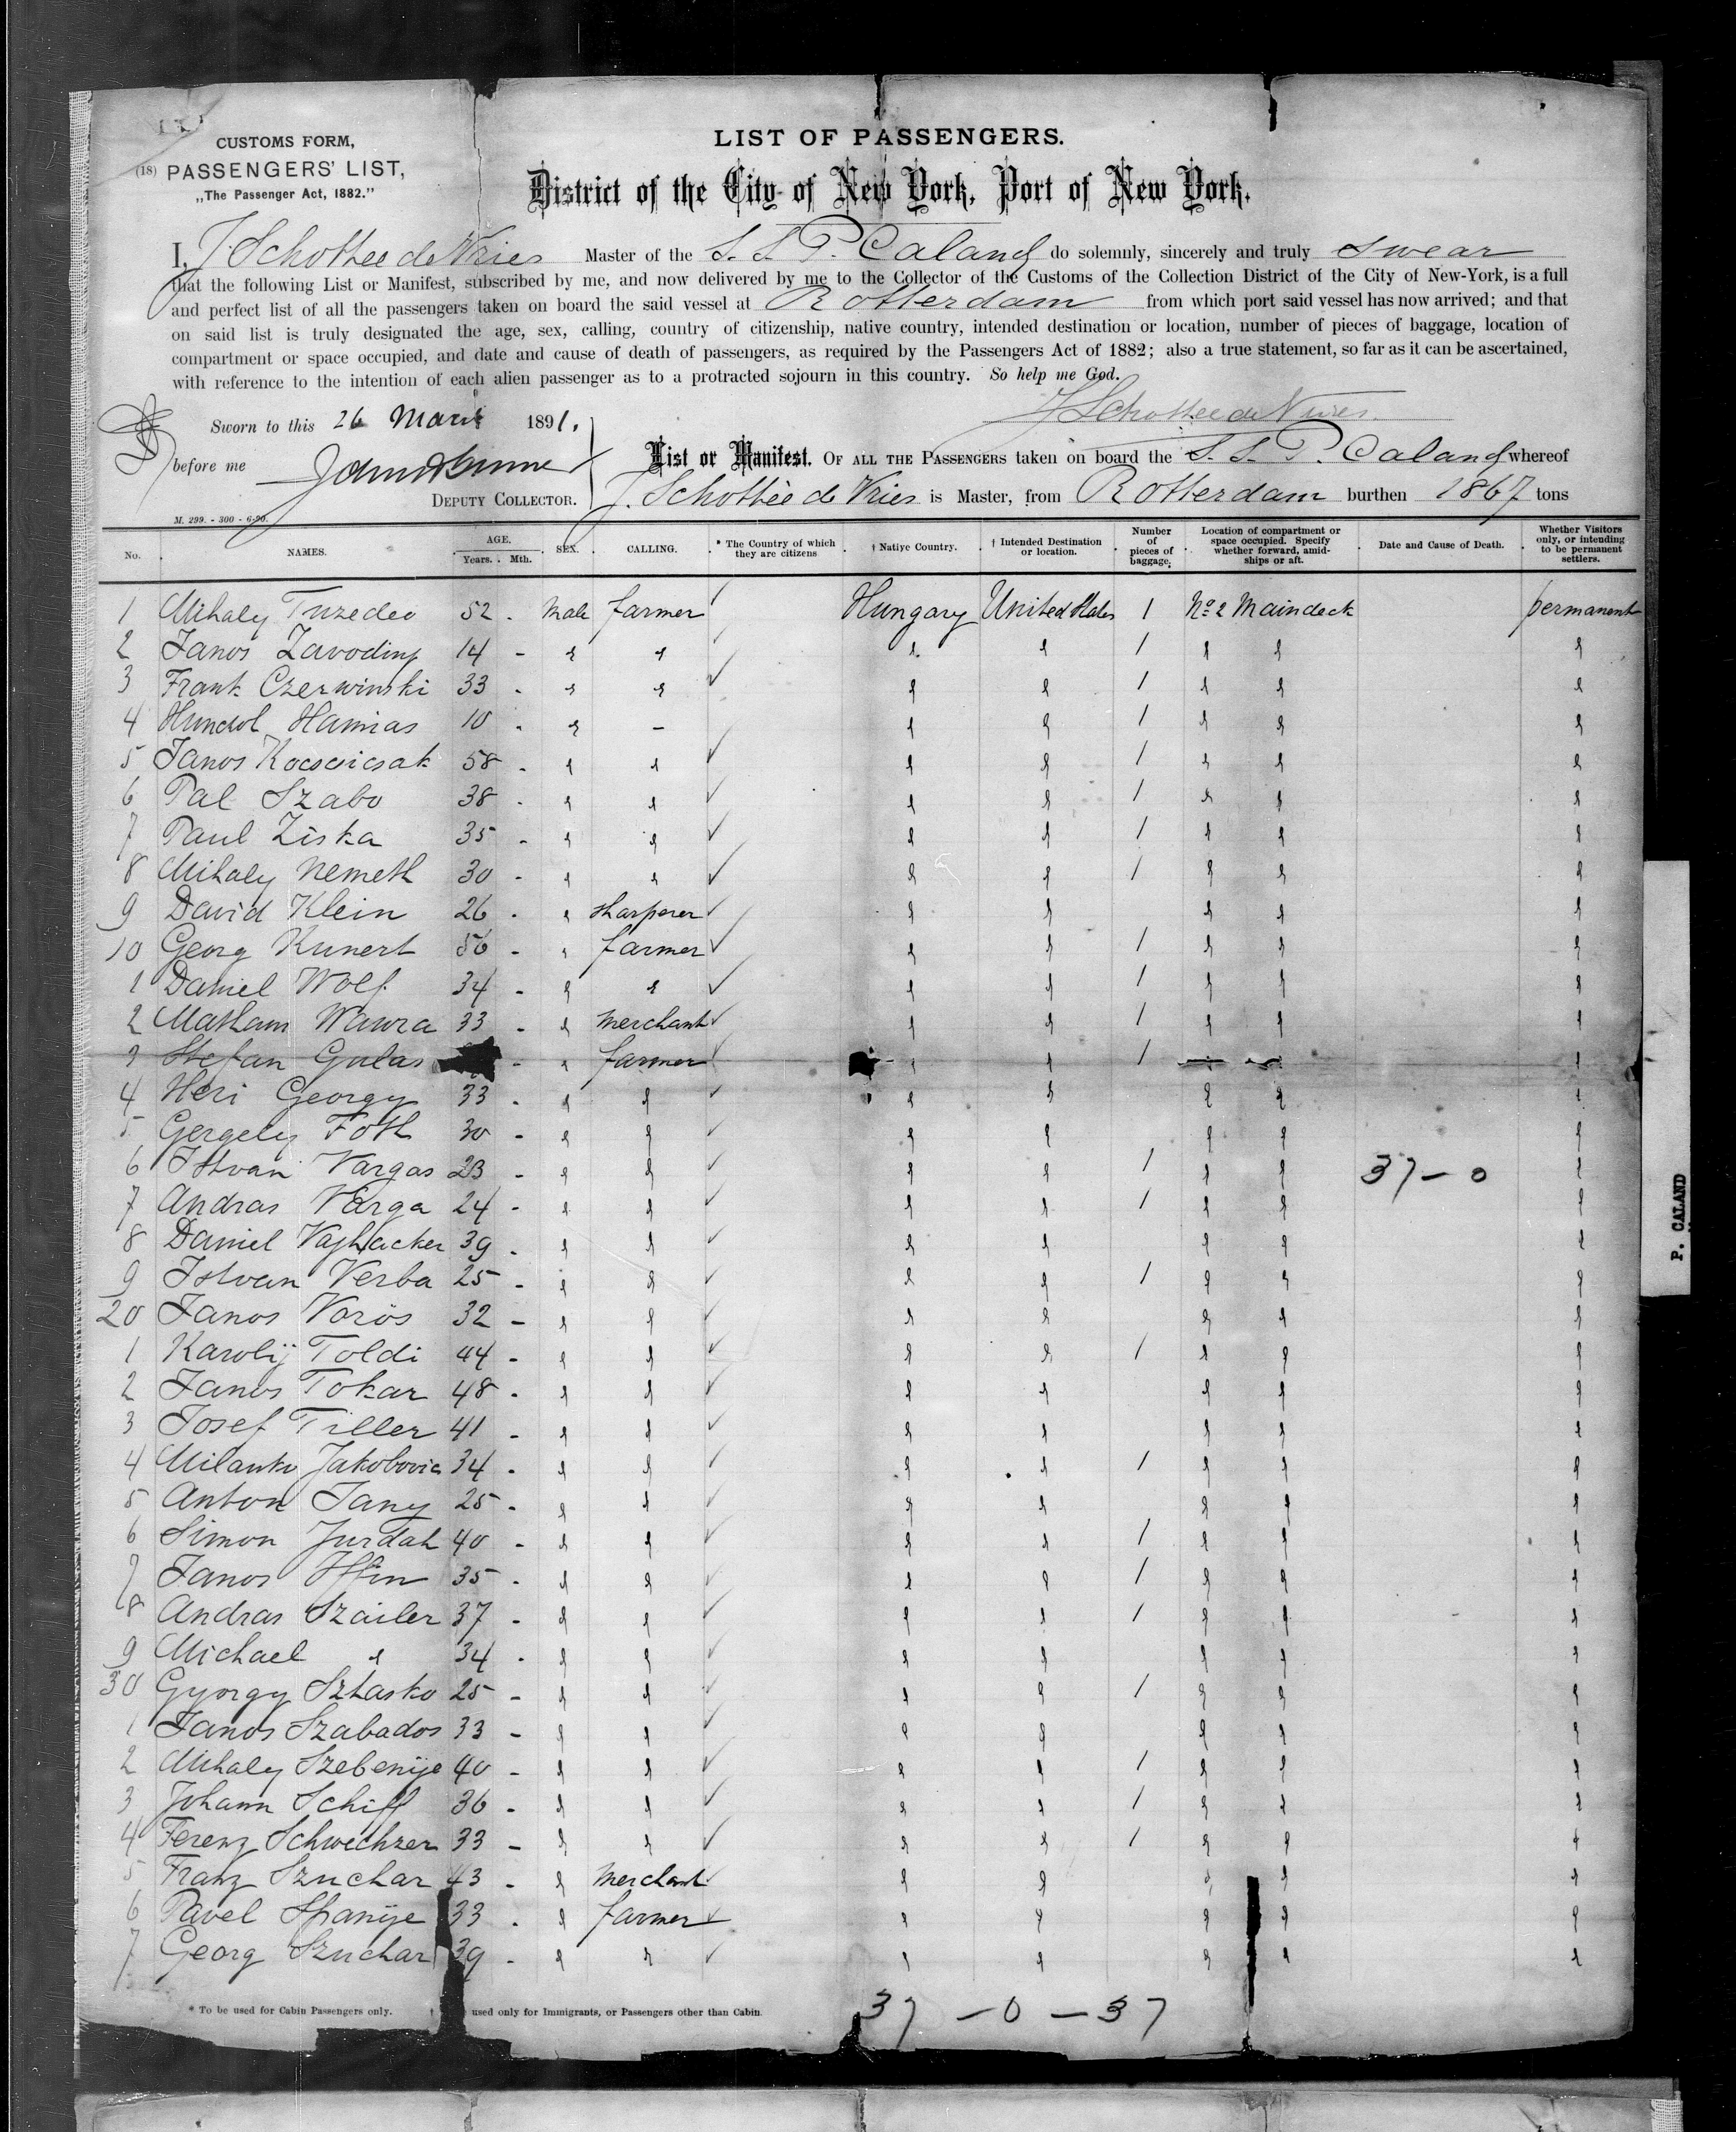 CUSTOMS FORM,
(18) PASSENGERS' LIST,
„The Passenger Act, 1882."
LIST OF PASSENGERS.
District of the City of New York, Port of New York.
I, J Schottee de Vries Master of the S. S P. Caland do solemnly, sincerely and truly swear
that the following List or Manifest, subscribed by me, and now delivered by me to the Collector of the Customs of the Collection District of the City of New-York, is a full
and perfect list of all the passengers taken on board the said vessel at Rotterdam from which port said vessel has now arrived; and that
on said list is truly designated the age, sex, calling, country of citizenship, native country, intended destination or location, number of pieces of baggage, location of
compartment or space occupied, and date and cause of death of passengers, as required by the Passengers Act of 1882; also a true statement, so far as it can be ascertained,
with reference to the intention of each alien passenger as to a protracted sojourn in this country. So help me God.
J Schottee de Vries.
Sworn to this 26 1891.
before me
DEPUTY COLLECTOR.
List or Manifest. OF ALL THE PASSENGERS taken on board the S. S. P. Caland whereof
J. Schottée de Vries is Master, from Rotterdam burthen 1867 tons
M. 299. - 300 - 6-90.
No. NAMES. AGE. Years. Mth. SEX. CALLING. * The Country of which they are citizens † Native Country. † Intended Destination or location. Number of pieces of baggage. Location of compartment or space occupied. Specify whether forward, amidships or aft. Date and Cause of Death. Whether Visitors only, or intending to be permanent settlers.
1 Mihaly 52 . Male farmer Hungary United States 1 No 2 Maindeck permanent
2 Janos Zavodiny 14 - " " " " 1 " " "
3 Frank Czerwinski 33 . " " " " 1 " " "
4 10 . " - " " 1 " " "
5 Janos 58 . " " " " 1 " " "
6 Pal Szabo 38 . " " " " 1 " " "
7 Paul Ziska 35 - " " " " 1 " " "
8 Mihaly Nemeth 30 - " " " " 1 " " "
9 David Klein 26 . " " " " " "
10 Georg Kunert 56 - " farmer " " 1 " " "
1 Daniel Wolf 34 - " " " " 1 " " "
2 Wawra 33 - " merchant " " 1 " " "
3 Stefan Gulas - " farmer " " 1 " " "
4 Heri Georgy 33 . " " " " " " "
5 Gergely Toth 30 - " " " " " " "
6 Istvan Vargas 23 - " " " " 1 " " 37 - 0 "
7 Andras Varga 24 - " " " " 1 " " "
8 Daniel 39 . " " " " " " "
9 Istvan Verba 25 - " " " " 1 " " "
20 Janos Vörös 32 - " " " " " " "
1 Karolij Toldi 44 - " " " " 1 " " "
2 Janos Tokar 48 . " " " " " " "
3 Josef Tiller 41 - " " " " " " "
4 Milanko Jakobovic 34 . " " " " 1 " " "
5 Anton Jany 25 . " " " " " " "
6 Simon Jurdak 40 - " " " " 1 " " "
7 Janos 35 . " " " " 1 " " "
8 Andras Szailer 37 - " " " " 1 " " "
9 Michael " 34 . " " " " " " "
30 Gyorgy Sztasko 25 - " " " " 1 " " "
1 Janos Szabados 33 - " " " " " " "
2 Mihaly Szebenije 40 - " " " " 1 " " "
3 Johann Schiff 36 . " " " " 1 " " "
4 Ferenz Schwechzer 33 - " " " " 1 " " "
5 Franz Szuchar 43 . " merchant " " " " "
6 Pavel Spanije 33 . " farmer " " " " "
7 Georg Szuchar 39 . " " " " " " "
* To be used for Cabin Passengers only. † used only for Immigrants, or Passengers other than Cabin.
37 - 0 - 37
P. CALAND